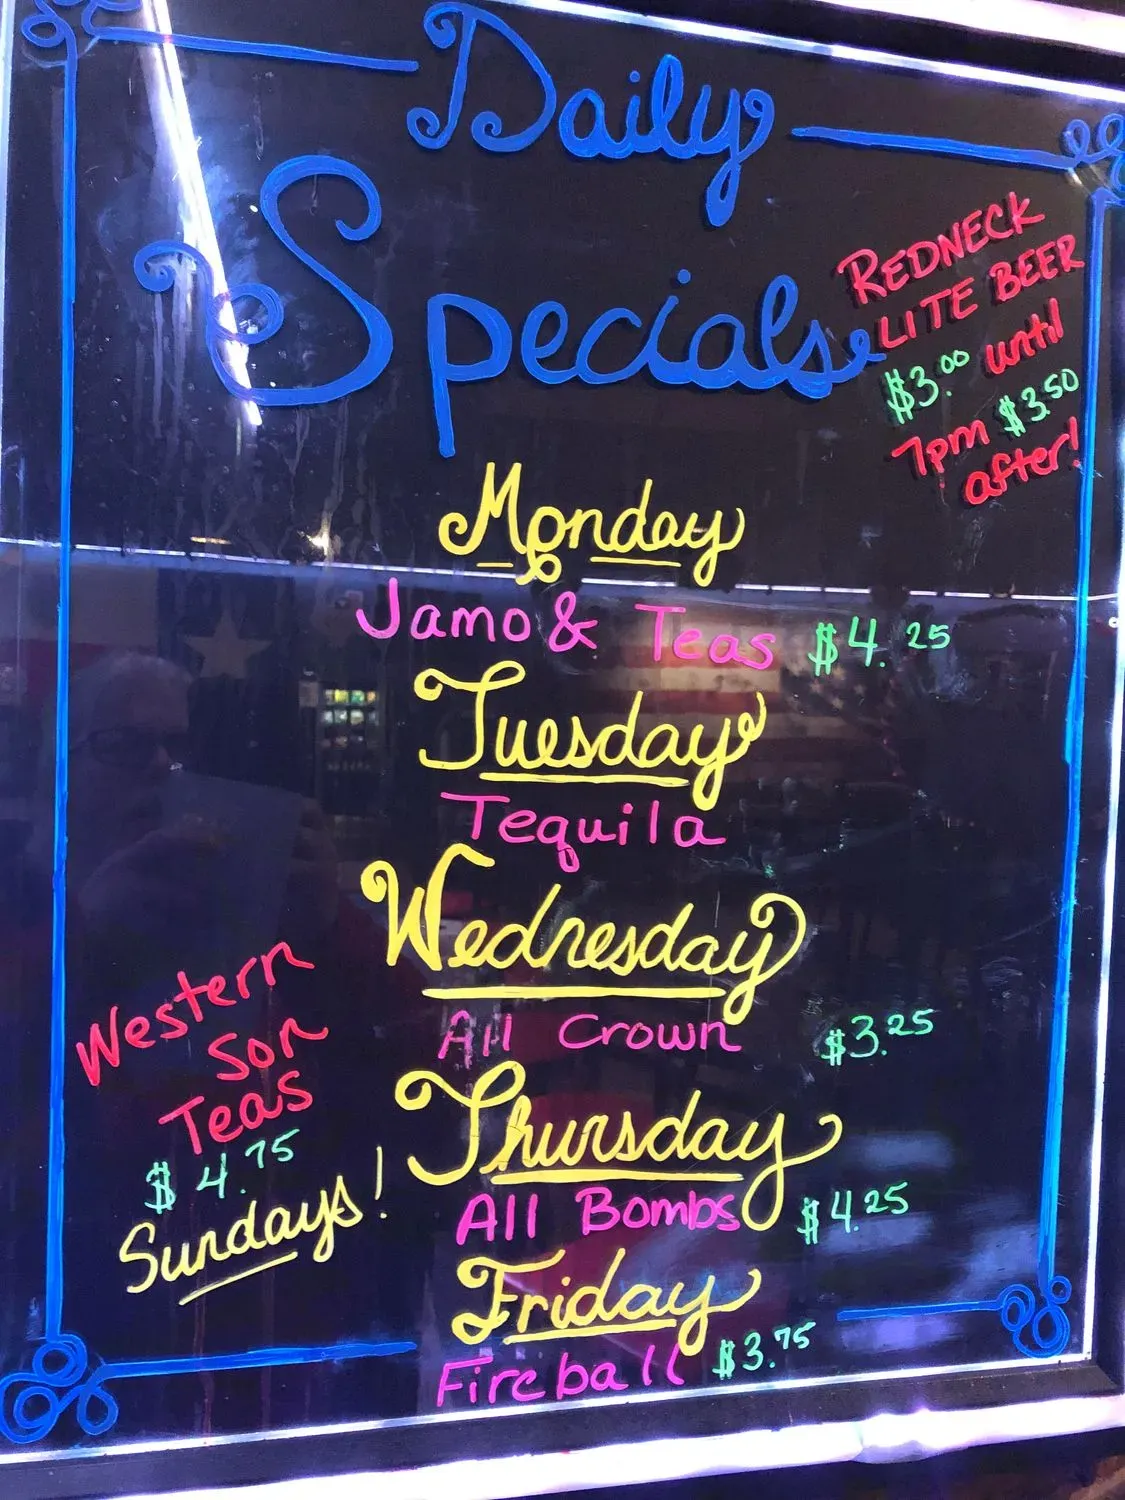 Daily
Specials
REDNECK
LITE BEER
$3.00 until
7pm $3.50
after!
Monday
Jamo & Teas $4.25
Tuesday
Tequila
Wednesday
All Crown $3.25
Thursday
All Bombs $4.25
Friday
Fireball $3.75
Western
Son
Teas
$4.75
Sundays!